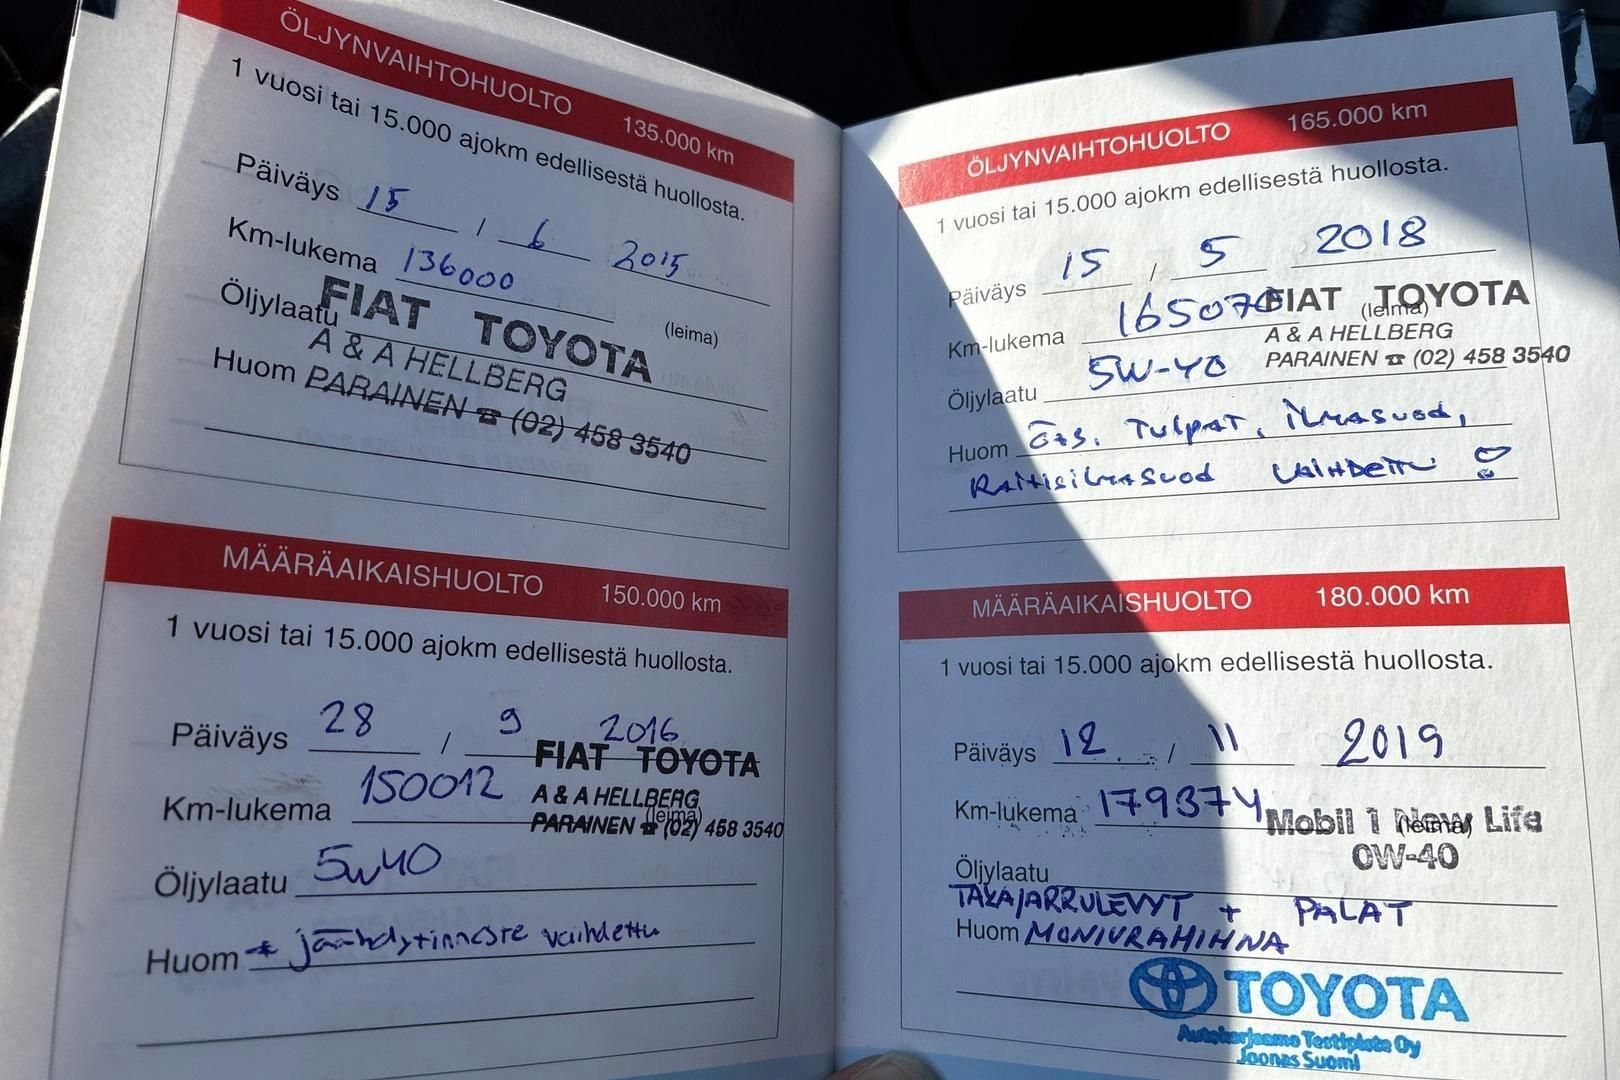 ÖLJYNVAIHTOHUOLTO 135.000 km
1 vuosi tai 15.000 ajokm edellisestä huollosta.
Päiväys 15 / 6 2015
Km-lukema 136000
Öljylaatu (leima)
FIAT TOYOTA
A & A HELLBERG
Huom PARAINEN ☎ (02) 458 3540
MÄÄRÄAIKAISHUOLTO 150.000 km
1 vuosi tai 15.000 ajokm edellisestä huollosta.
Päiväys 28 / 9 2016
FIAT TOYOTA
Km-lukema 150012
A & A HELLBERG
(leima)
PARAINEN ☎ (02) 458 3540
Öljylaatu 5W40
Huom * jäähdytinneste vaihdettu
ÖLJYNVAIHTOHUOLTO 165.000 km
1 vuosi tai 15.000 ajokm edellisestä huollosta.
Päiväys 15 / 5 2018
FIAT TOYOTA
(leima)
Km-lukema 165070
A & A HELLBERG
PARAINEN ☎ (02) 458 3540
Öljylaatu 5W-40
Huom TULPAT, iLMASUOD,
RAITISiLMASUOD VAIHDETTU !
MÄÄRÄAIKAISHUOLTO 180.000 km
1 vuosi tai 15.000 ajokm edellisestä huollosta.
Päiväys 12 / 11 2019
Km-lukema 179374
Mobil 1 New Life
(leima)
0W-40
Öljylaatu
TAKAJARRULEVYT + PALAT
Huom MONIURAHIHNA
TOYOTA
Autokorjaamo Testipiste Oy
Joonas Suomi